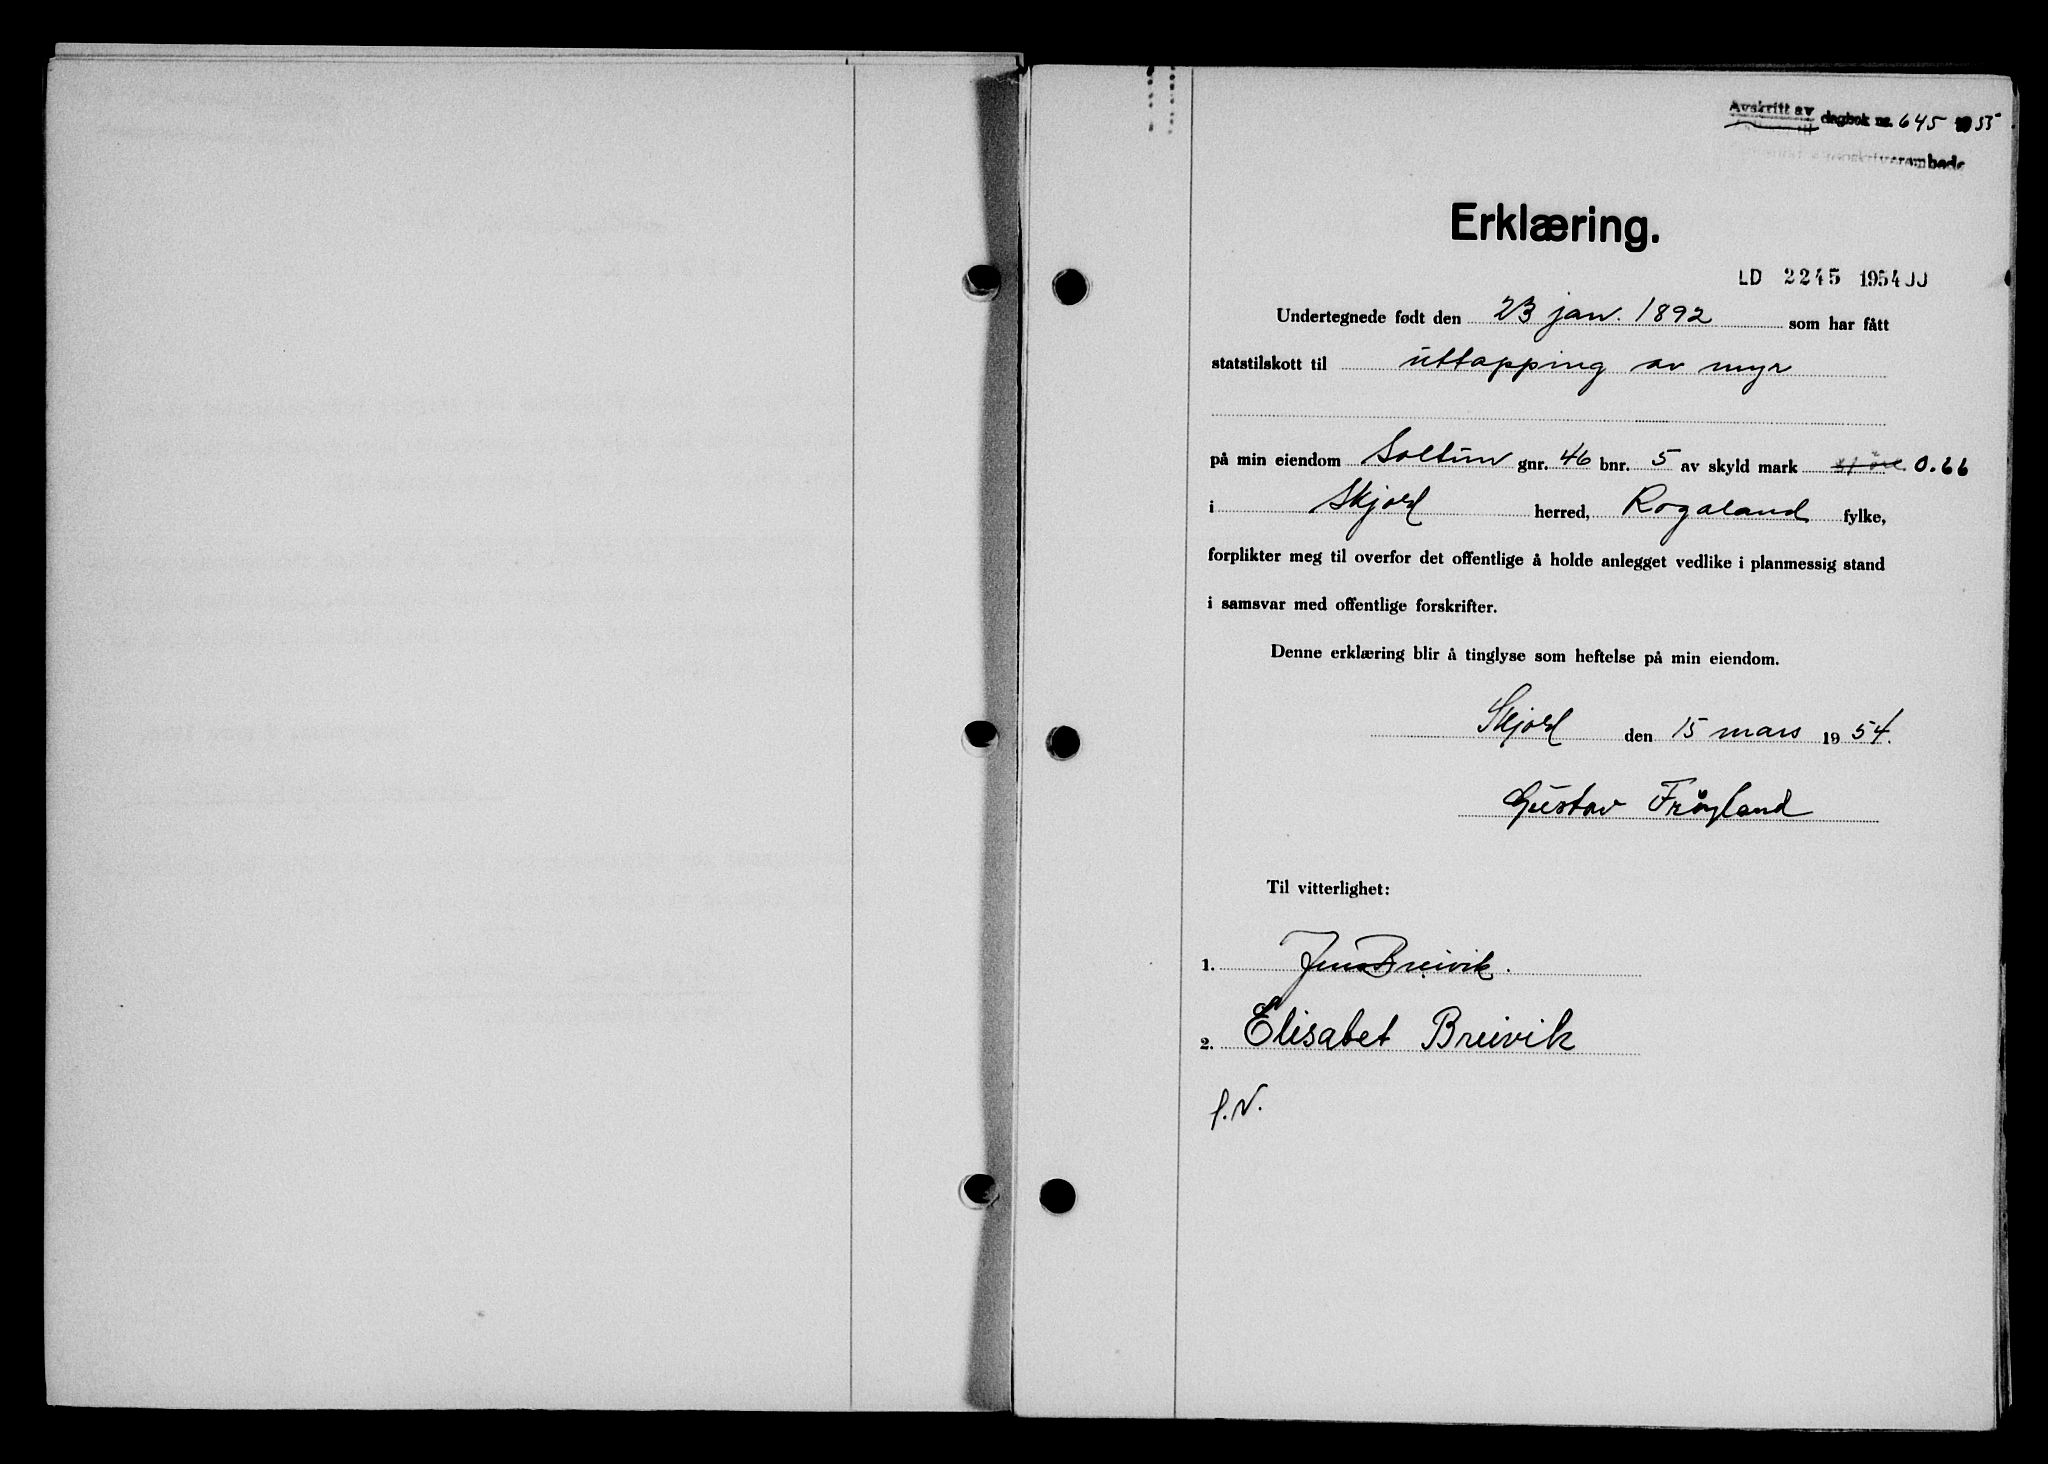 Avskrift av dagbok nr. 645 1955
Erklæring.
LD 2245 1954 JJ
Undertegnede født den 23 jan. 1892 som har fått
statstilskott til uttapping av myr
på min eiendom Soltun gnr. 46 bnr. 5 av skyld mark 0.66
i Skjold herred, Rogaland fylke,
forplikter meg til overfor det offentlige å holde anlegget vedlike i planmessig stand
i samsvar med offentlige forskrifter.
Denne erklæring blir å tinglyse som heftelse på min eiendom.
Skjold den 15 mars 1954.
Gustav Frøyland
Til vitterlighet:
1. Jens Breivik.
2. Elisabet Breivik